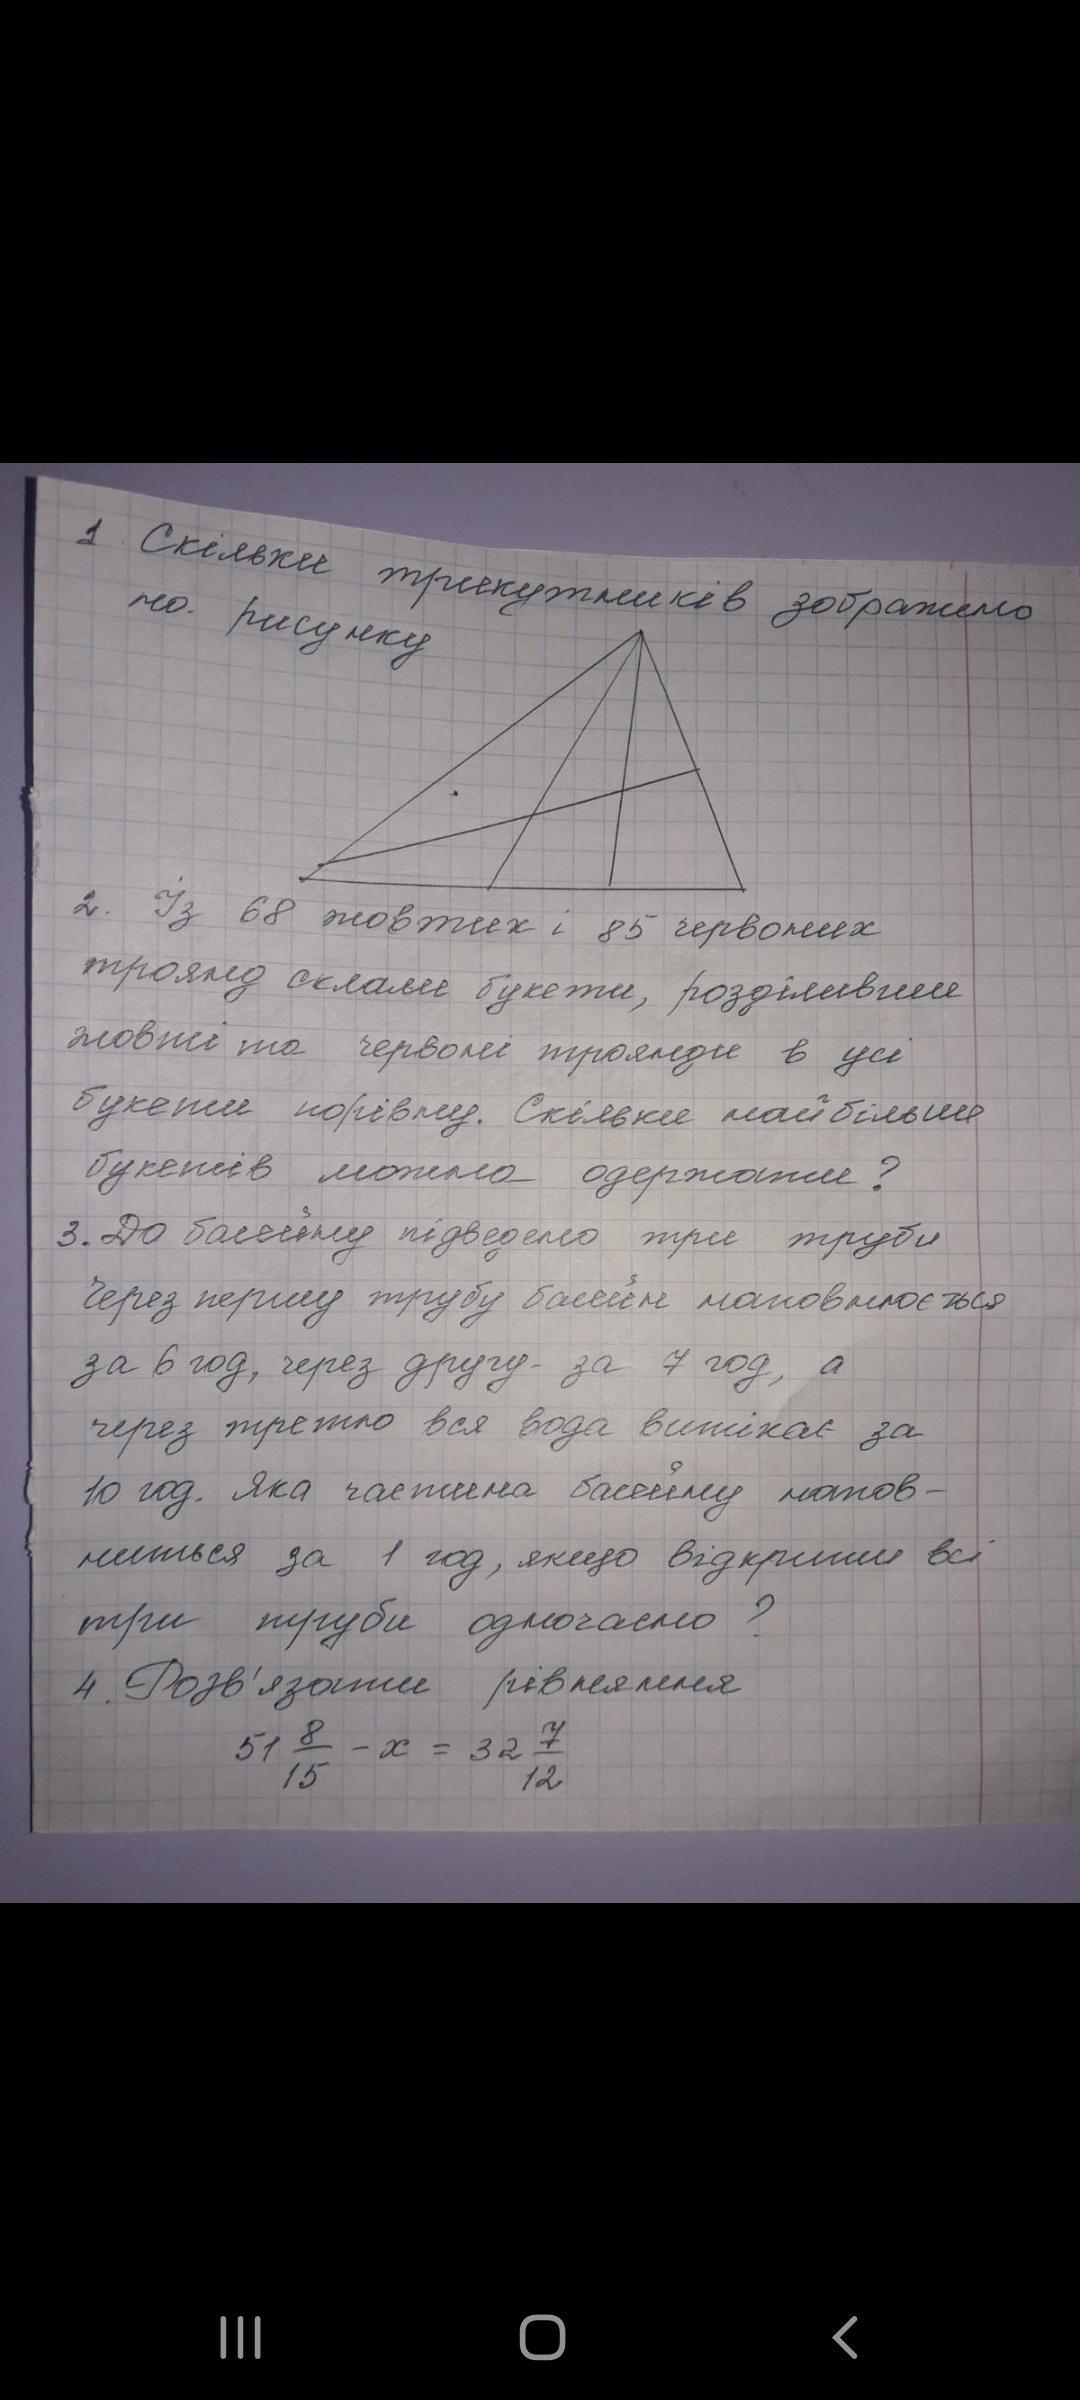 1 Скільки трикутників зображено
на. рисунку
2. Із 68 жовтих і 85 червоних
троянд склали букети, розділивши
жовті та червоні троянди в усі
букети порівну. Скільки найбільше
букетів можна одержати?
3. До басейну підведено три труби
Через першу трубу басейн наповнюється
за 6 год, через другу - за 7 год, а
через третю вся вода витікає за
10 год. Яка частина басейну напов-
ниться за 1 год, якщо відкрити всі
три труби одночасно?
4. Розв'язати рівняння
51 8/15 - x = 32 7/12